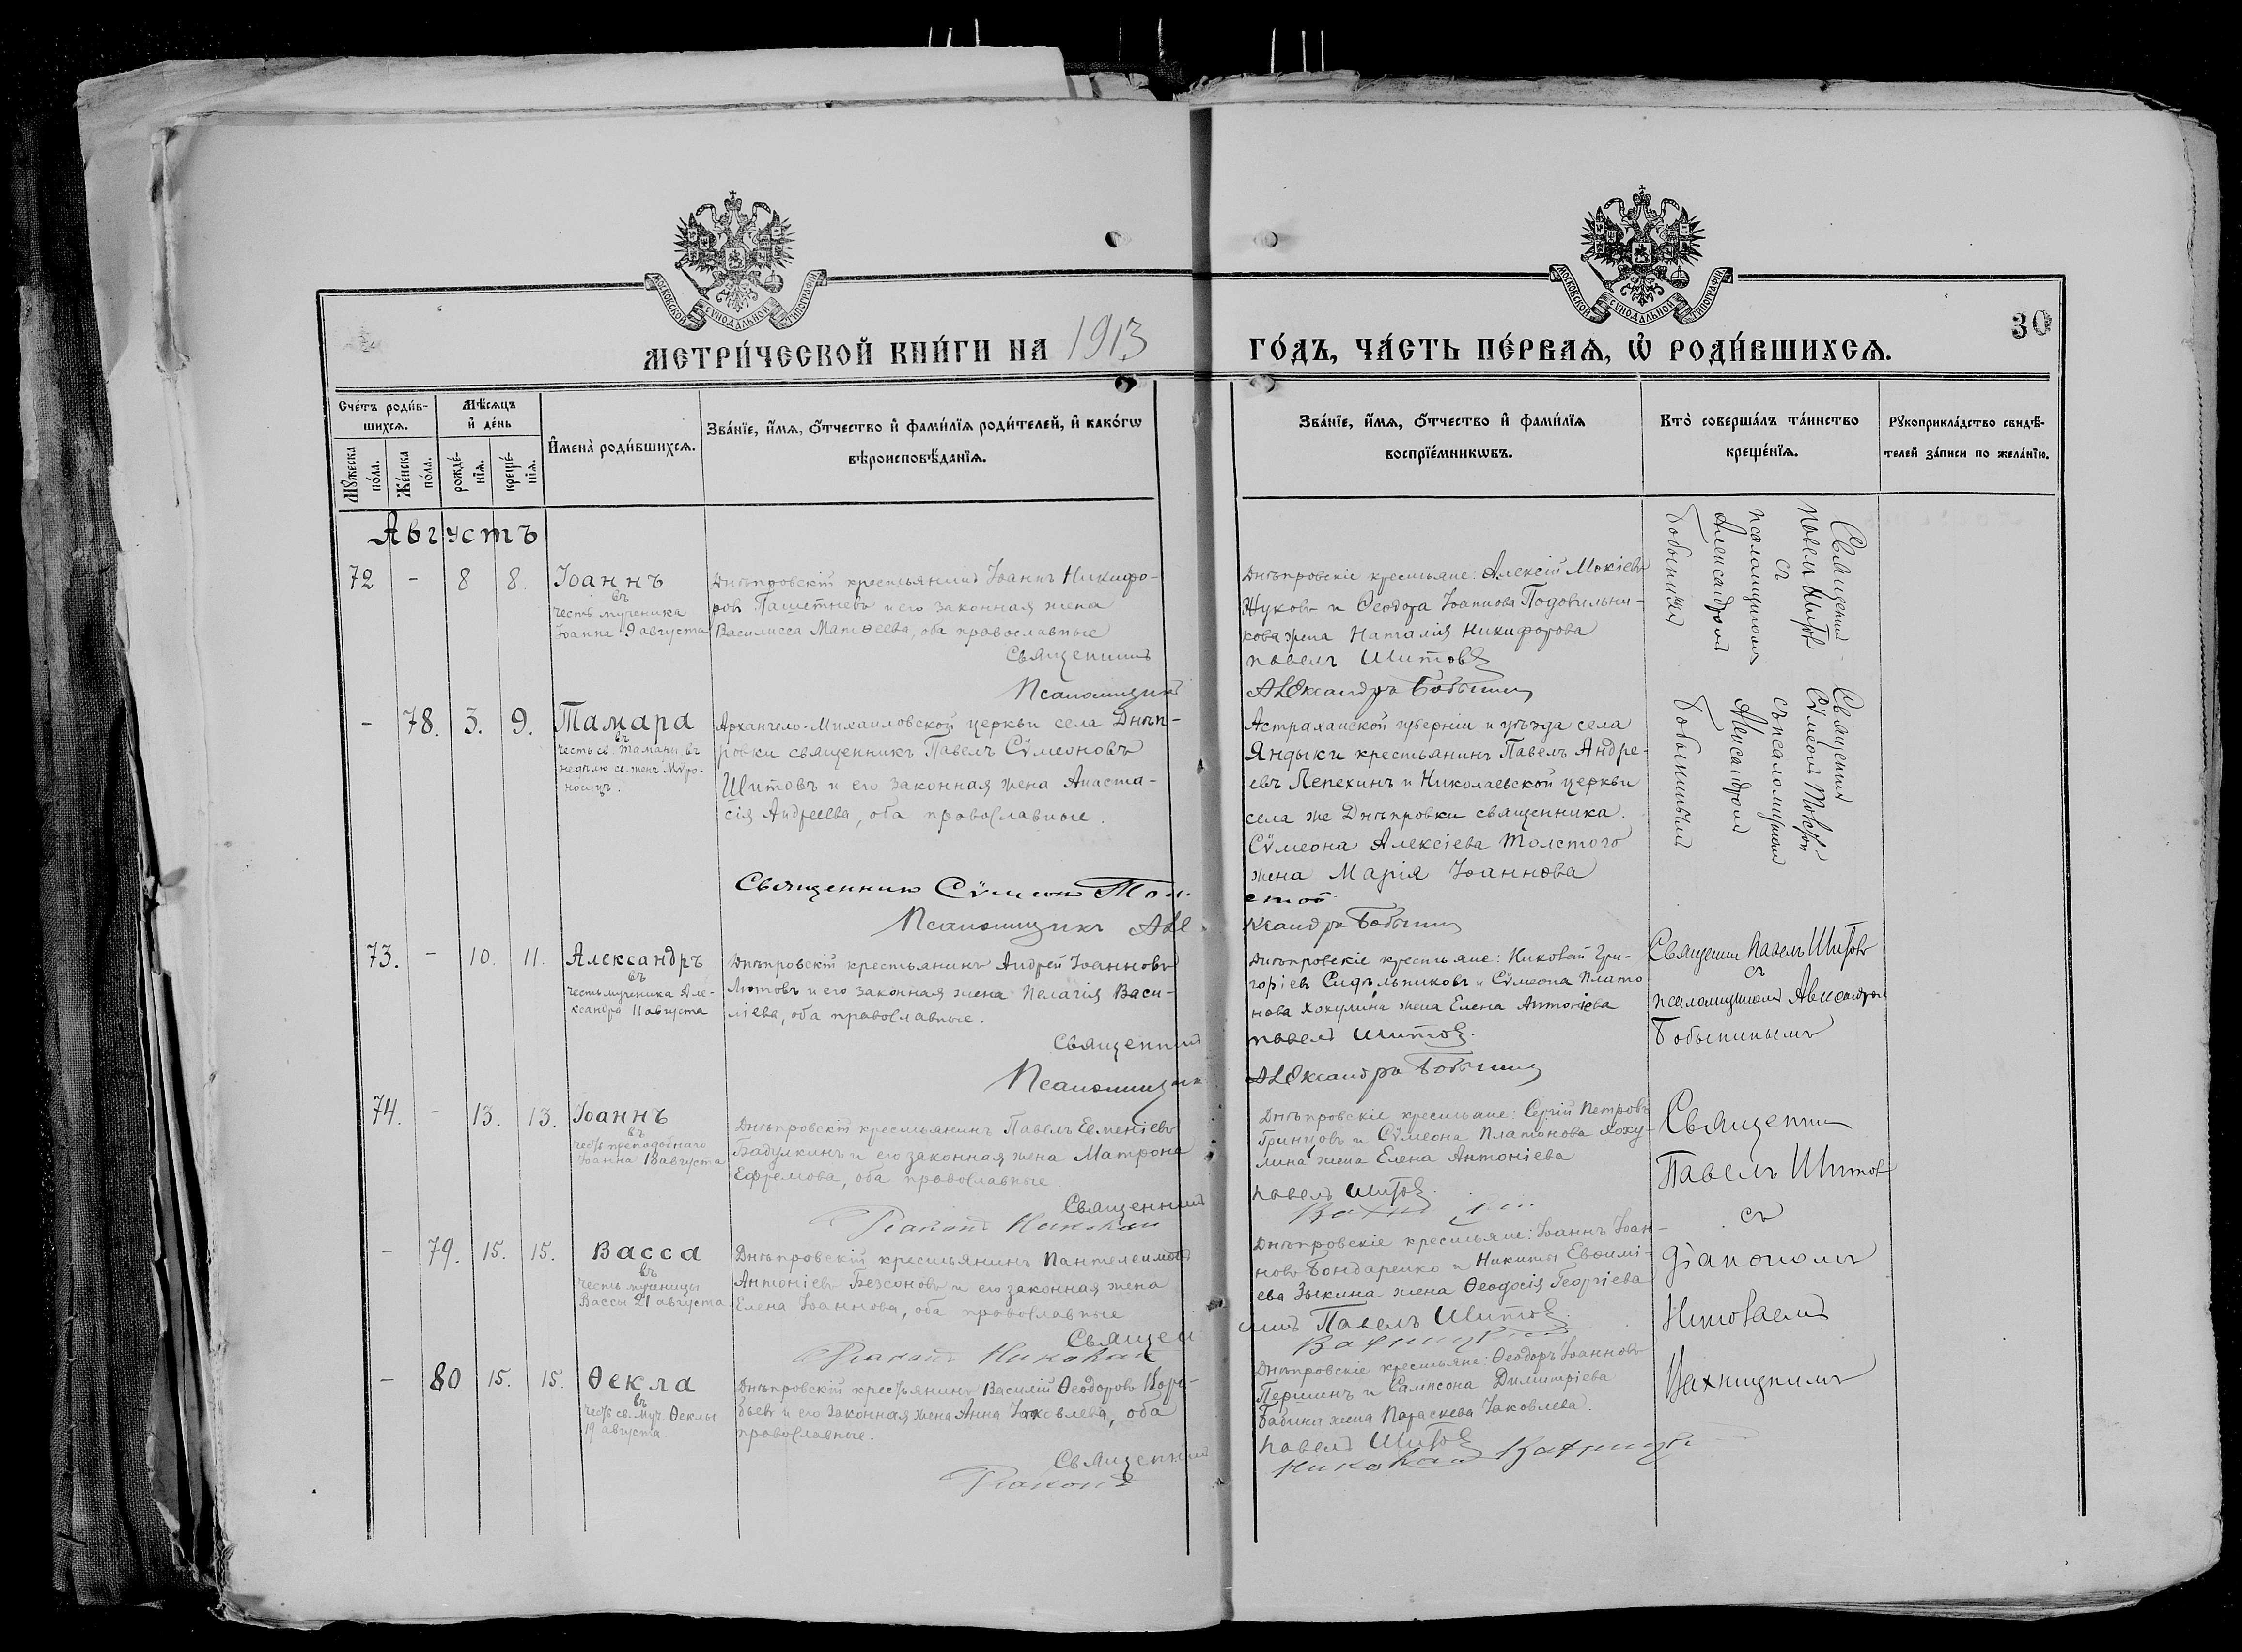 МОСКОВСКОЙ СѴНОДАЛЬНОЙ ТИПОГРАФІИ
МОСКОВСКОЙ СѴНОДАЛЬНОЙ ТИПОГРАФІИ
30
МЕТРИ́ЧЕСКОЙ КНИ́ГИ НА 1913 ГО́ДЪ, ЧА́СТЬ ПЕ́РВАѦ, Ѡ҆ РОДИ́ВШИХСѦ.
Сче́тъ роди́в-
шихсѧ.
Мꙋ́жеска по́ла.
Же́нска по́ла.
Мѣ́сѧцъ
и҆ де́нь
рожде́-
нїѧ.
креще́-
нїѧ.
И҆мена̀ роди́вшихсѧ.
Зва́нїе, и҆́мѧ, ѻ҆́тчество и҆ фами́лїѧ роди́телей, и҆ како́гѡ
вѣроисповѣ́данїѧ.
Зва́нїе, и҆́мѧ, ѻ҆́тчество и҆ фами́лїѧ
воспрїе́мникѡвъ.
Кто̀ соверша́лъ та́инство
креще́нїѧ.
Рꙋкоприкла́дство свидѣ́-
телей за́писи по жела́нїю.
Августъ
72 - 8 8. Іоаннъ
въ
честь мученика
Іоанна 9 августа
Днѣпровскій крестьянинъ Іоаннъ Никифо-
ровъ и его законная жена
Василисса Матѳеева, оба православные
Священникъ
Псаломщикъ
Днѣпровскіе крестьяне: Алексій Мокіевъ
Жуковъ и Ѳеодора Іоаннова Подовильни-
кова жена Наталія Никифорова
Павелъ Шитовъ
Александръ Бобынинъ
Священникъ
Павелъ Шитовъ
съ
псаломщикомъ
Александромъ
Бобынинымъ
- 78. 3. 9. Тамара
въ
честь св. Тамары въ
недѣлю св. женъ Мѵро-
носицъ.
Архангело-Михаиловской церкви села Днѣп-
ровки священникъ Павелъ Сѵмеоновъ
Шитовъ и его законная жена Анаста-
сія Андреева, оба православные.
Священникъ Сѵмеонъ Тол-
Псаломщикъ Але
Астраханской губерніи и уѣзда села
Яндыки крестьянинъ Павелъ Андре-
евъ Лепехинъ и Николаевской церкви
села же Днѣпровки священника
Сѵмеона Алексіева Толстого
жена Марія Іоаннова
стой
ксандръ Бобынинъ
Священникъ
Сѵмеонъ Толстой
съ псаломщикомъ
Александромъ
Бобынинымъ
73. - 10. 11. Александръ
въ
честь мученика Але-
ксандра 11 августа
Днѣпровскій крестьянинъ Андрей Іоанновъ
Лютовъ и его законная жена Пелагія Васи-
ліева, оба православные.
Священникъ
Псаломщикъ
Днѣпровскіе крестьяне: Николай Гри-
горіевъ Сидѣльниковъ и Сѵмеона Плато
нова Хохулина жена Елена Антоніева
Павелъ Шитовъ.
Александръ Бобынинъ
Священникъ Павелъ Шитовъ
съ
псаломщикомъ Александромъ
Бобынинымъ
74. - 13. 13. Іоаннъ
въ
честь преподобнаго
Іоанна 18 августа
Днѣпровскій крестьянинъ Павелъ Евменіевъ
Бадулкинъ и его законная жена Матрона
Ефремова, оба православные.
Священникъ
Діаконъ Николай
Днѣпровскіе крестьяне: Сергій Петровъ
Гринцовъ и Сѵмеона Платонова Хоху-
лина жена Елена Антоніева
Павелъ Шитовъ.
Священникъ
Павелъ Шитовъ
съ
діакономъ
Николаемъ
- 79. 15. 15. Васса
въ
честь мученицы
Вассы 21 августа
Днѣпровскій крестьянинъ Пантелеимонъ
Антоніевъ Безсоновъ и его законная жена
Елена Іоаннова, оба православные
Священ
Діаконъ Николай
Днѣпровскіе крестьяне: Іоаннъ Іоан-
новъ Бондаренко и Никиты Евѳимі-
ева Зыкина жена Ѳеодосія Георгіева
никъ Павелъ Шитовъ.
- 80 15. 15. Ѳекла
въ
честь св. муч. Ѳеклы
19 августа.
Днѣпровскій крестьянинъ Василій Ѳеодоровъ
и его законная жена Анна Іаковлева, оба
православные.
Священникъ
Діаконъ
Днѣпровскіе крестьяне: Ѳеодоръ Іоанновъ
Першинъ и Сампсона Димитріева
Бабина жена Параскева Іаковлева.
Павелъ Шитовъ
Николай